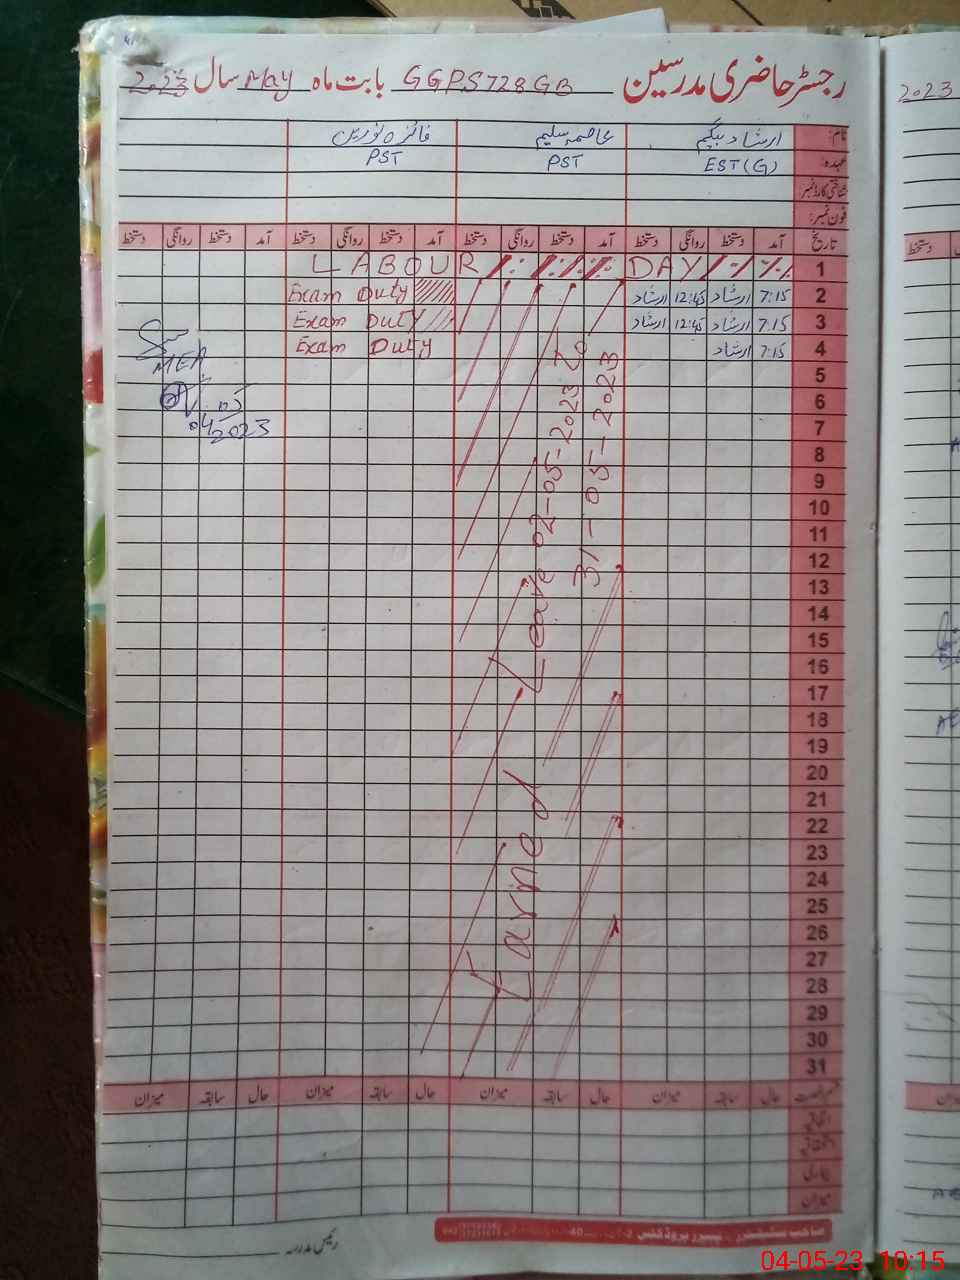 رجسٹر حاضری مدرسین GGPS 728 GB بابت ماہ May سال 2023
2023
نام: ارشاد بیگم عاصمہ سلیم فائزہ نورین
عہدہ: EST (G) PST PST
شناختی کارڈ نمبر
فون نمبر:
تاریخ آمد دستخط روانگی دستخط آمد دستخط روانگی دستخط آمد دستخط روانگی دستخط آمد دستخط روانگی دستخط
دستخط
1 LABOUR DAY
2 7:15 ارشاد 12:45 ارشاد Exam Duty
3 7:15 ارشاد 12:45 ارشاد Exam Duty
4 7:15 ارشاد Exam Duty
MEA
5
6
04/05/2023
7
8
9
10
11
12
13
14
15
16
17
18
19
20
21
22
23
24
25
26
27
28
29
30
31
Earned Leave 02-05-2023 To
31-05-2023
حال سابقہ میزان حال سابقہ میزان حال سابقہ میزان حال سابقہ میزان
میزان
رئیس مدرسہ
04-05-23 10:15